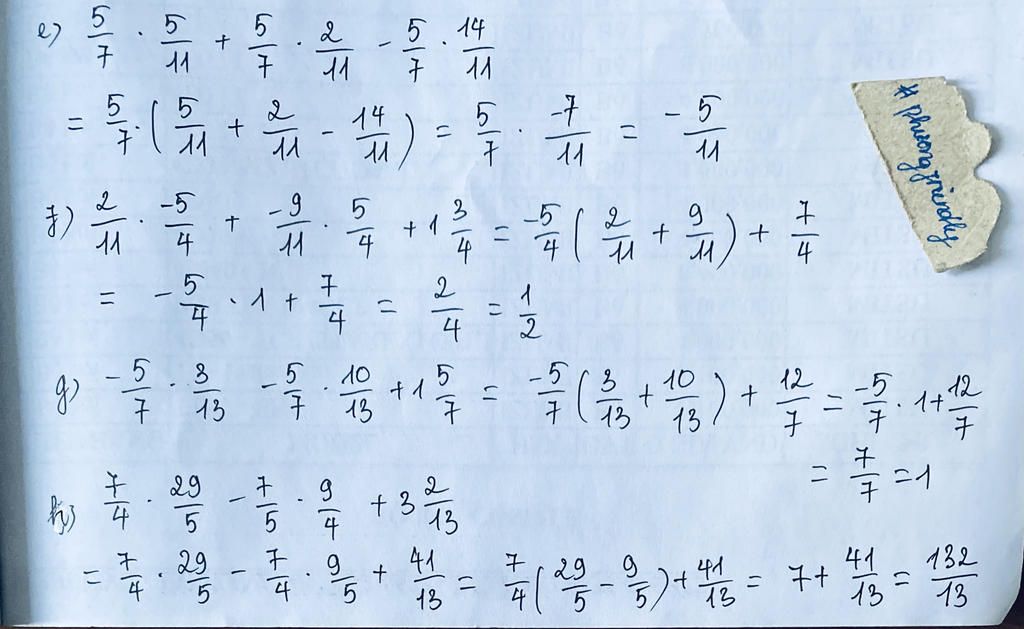 e) 5/7 · 5/11 + 5/7 · 2/11 - 5/7 · 14/11
= 5/7 · (5/11 + 2/11 - 14/11) = 5/7 · -7/11 = -5/11
f) 2/11 · -5/4 + -9/11 · 5/4 + 1 3/4 = -5/4 (2/11 + 9/11) + 7/4
= -5/4 · 1 + 7/4 = 2/4 = 1/2
g) -5/7 · 3/13 - 5/7 · 10/13 + 1 5/7 = -5/7 (3/13 + 10/13) + 12/7 = -5/7 · 1 + 12/7
= 7/7 = 1
h) 7/4 · 29/5 - 7/5 · 9/4 + 3 2/13
= 7/4 · 29/5 - 7/4 · 9/5 + 41/13 = 7/4 (29/5 - 9/5) + 41/13 = 7 + 41/13 = 132/13